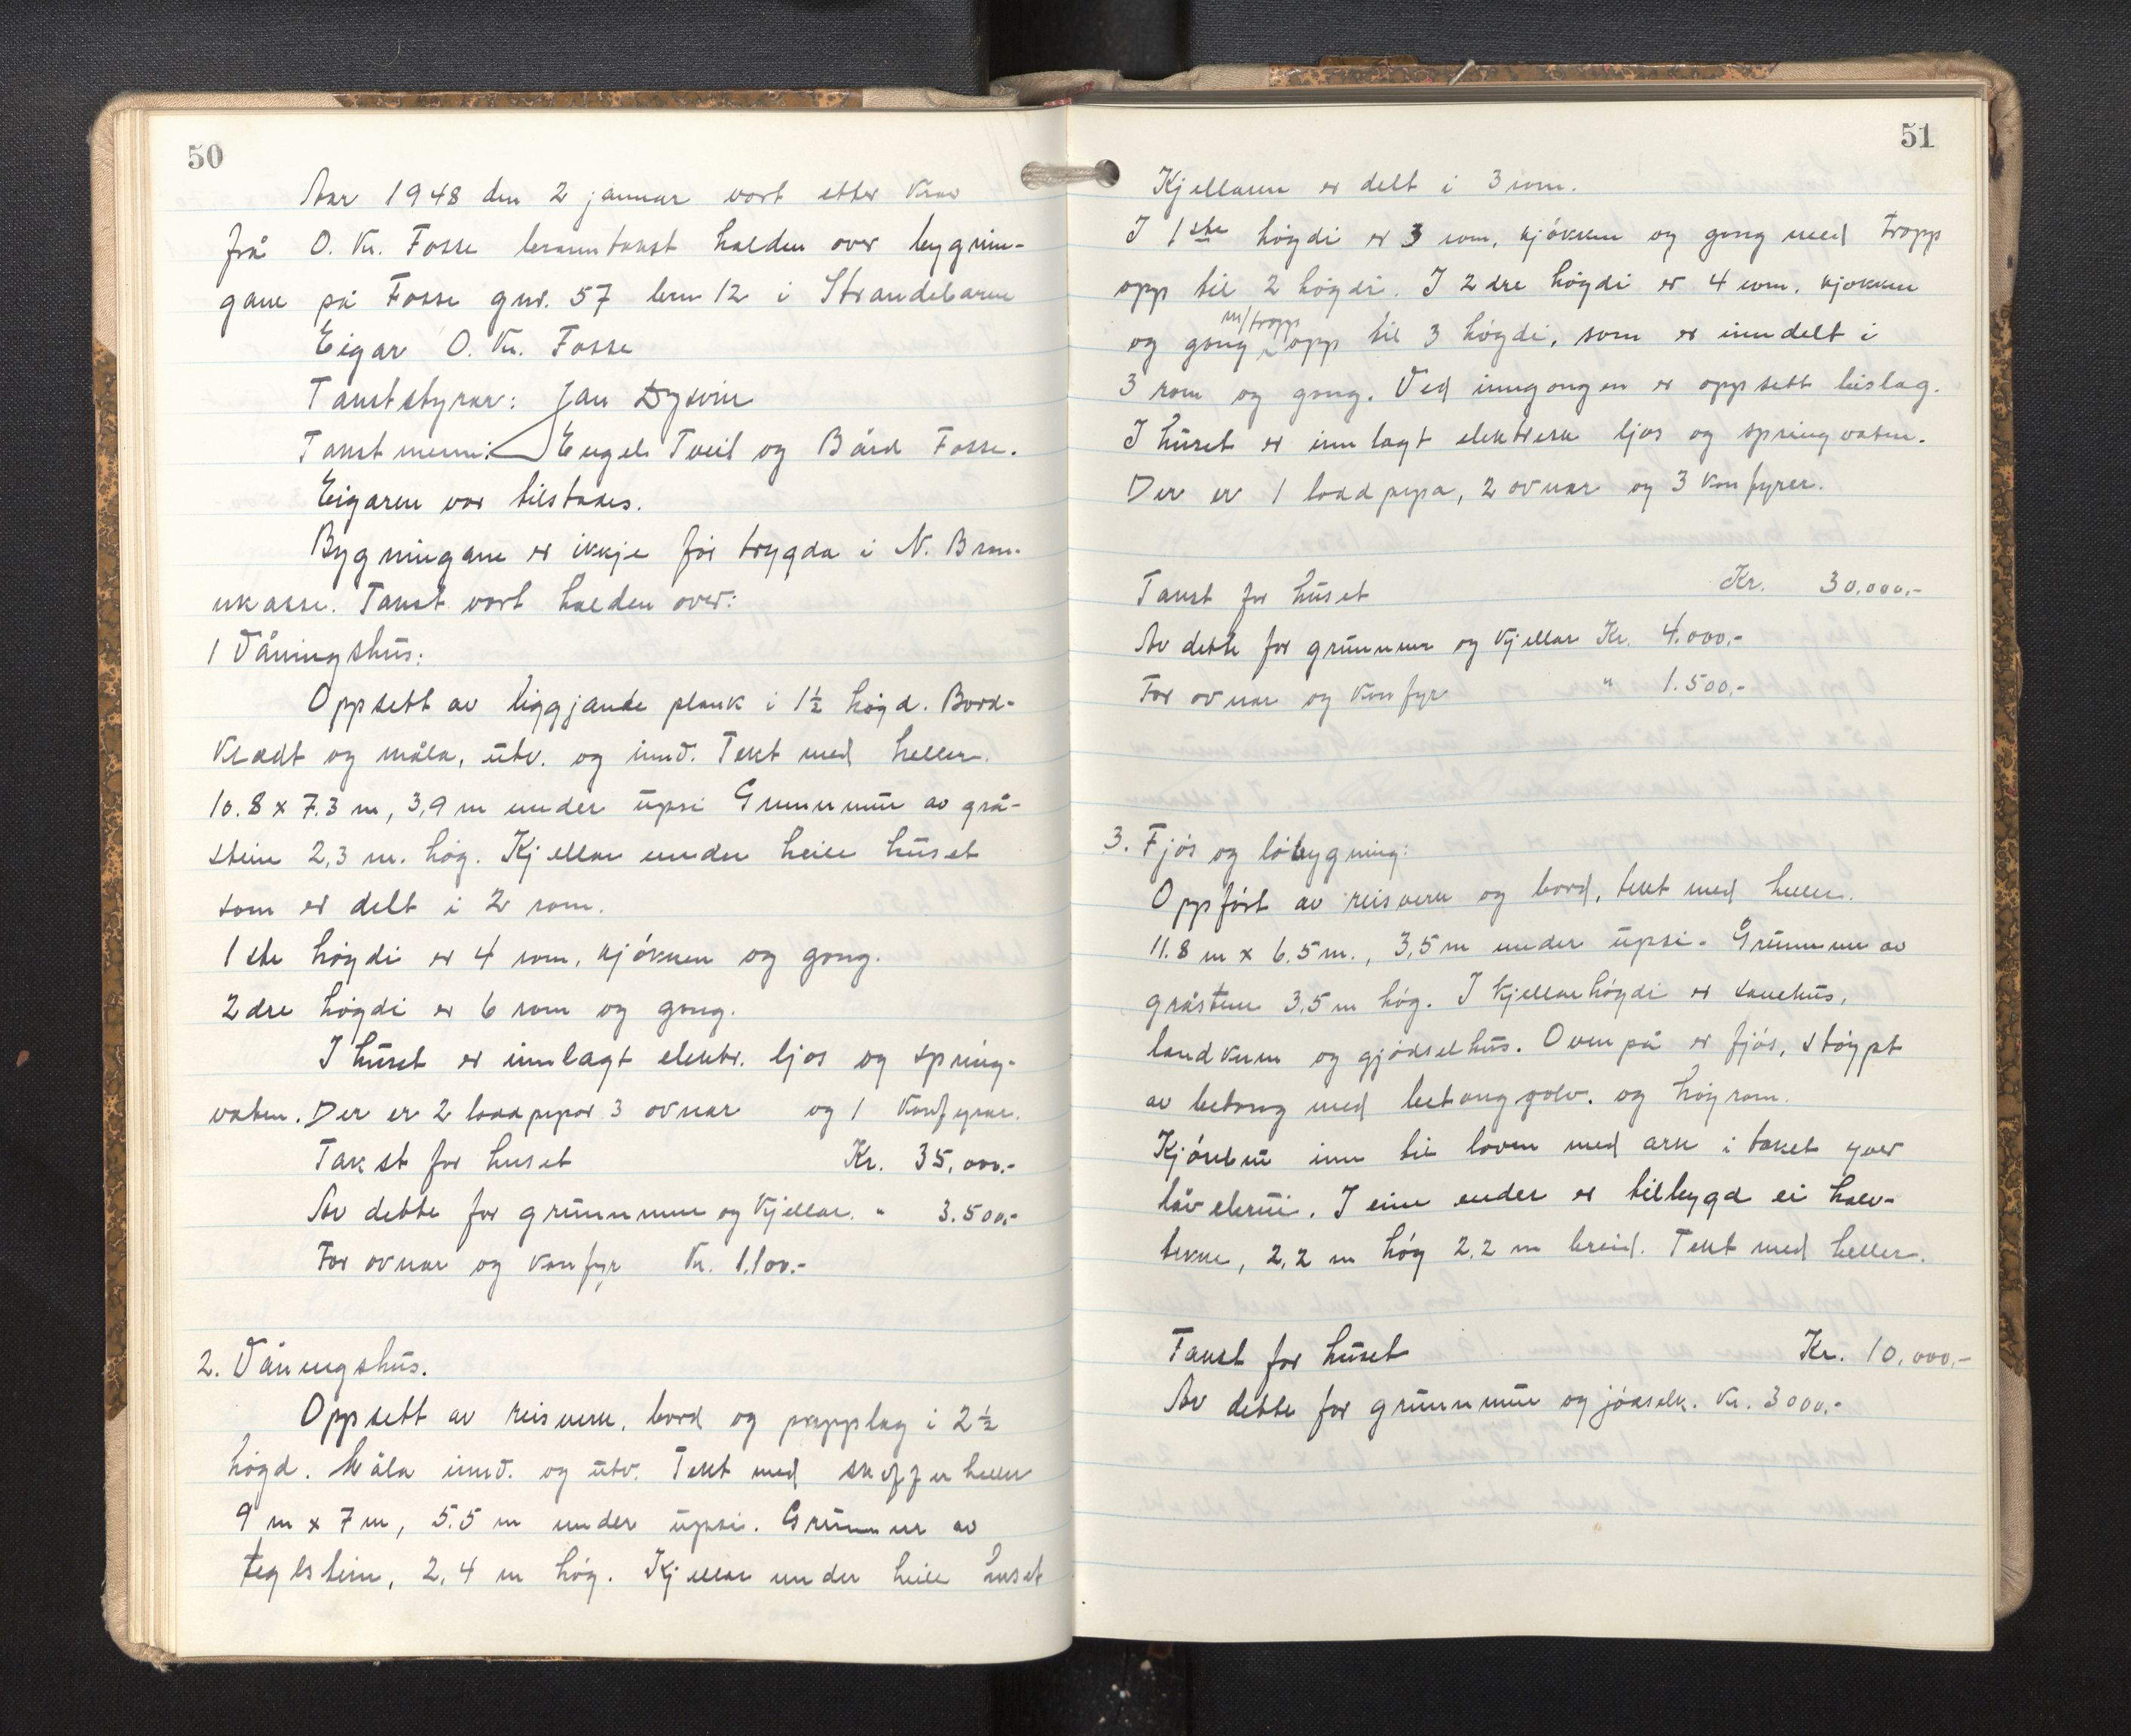 50
Aar 1948 den 2 januar vart etter krav
frå O. Kn. Fosse branntakst halden over bygnin-
gane på Fosse gnr. 57 brn 12 i Strandebarm
Eigar O. Kn. Fosse
Takststyrar: Jan Dysvik
Takstmenn: Engels Tveit og Bård Fosse.
Eigaren var tilstades.
Bygningane er ikkje før trygda i N. Bran-
nkasse. Takst vart halden over:
1 Våningshus:
Oppsett av liggjande plank i 1½ høgd. Bord-
klædt og måla, utv. og innv. Tekt med heller.
10.8 x 7.3 m, 3,9 m under upsi Grunnmur av grå-
stein 2,3 m. høg. Kjellar under heile huset
som er delt i 2 rom.
1ste høgdi er 4 rom, kjøkken og gong.
2dre høgdi er 6 rom og gong.
I huset er innlagt elektr. ljos og spring-
vatn. Der er 2 loddpipor 3 ovnar og 1 komfyrar.
Takst for huset Kr. 35,000.-
Av dette for grunnmur og kjellar. " 3.500.-
For ovnar og komfyr Kr. 1.100.-
2. Våningshus.
Oppsett av reisverk, bord og papplag i 2½
høgd. Måla innv. og utv. Tekt med skifferheller
9 m x 7 m, 5.5 m under upsi. Grunnur av
teglstein, 2,4 m høg. Kjellar under heile huset
51
Kjellaren er delt i 3 rom.
I 1ste høgdi er 3 rom, kjøkken og gong med tropp
opp til 2 høgdi. I 2dre høgdi er 4 rom, kjøkken
og gong m/tropp opp til 3 høgdi, som er inndelt i
3 rom og gong. Ved inngongen er oppsett bislag.
I huset er innlagt elektrisk ljos og springvatn.
Der er 1 loddpipa, 2 ovnar og 3 komfyrer.
Takst for huset Kr. 30.000.-
Av dette for grunnmur og kjellar Kr. 4.000.-
For ovnar og komfyr " 1.500.-
3. Fjøs og løbygning:
Oppført av reisverk og bord, tekt med heller.
11.8 m x 6.5 m., 3,5 m under upsi. Grunnmur av
gråstein 3,5 m høg. I kjellarhøgdi er sauehus,
landkum og gjødselhus. Ovenpå er fjøs, støypt
av betong med betonggolv. og høyrom.
Kjørebru inn til løven med ark i taket yver
låvebrui. I eine ender er tilbygd ei halv-
tekke, 2,2 m høg 2,2 m breid. Tekt med heller.
Takst for huset Kr. 10.000,-
Av dette for grunnmur og jødselk. Kr. 3000.-